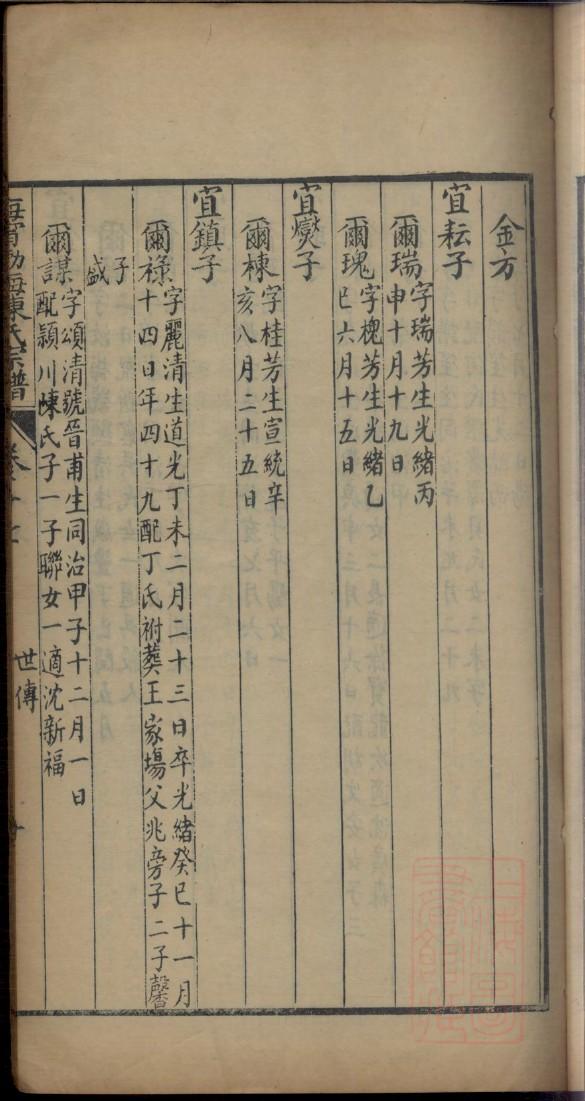 金方
宜耘子
爾瑞字瑞芳生光緒丙
申十月十九日
爾瑰字槐芳生光緒乙
巳六月十五日
宜爕子
爾棟字桂芳生宣統辛
亥八月二十五日
宜鎮子
爾祿字麗清生道光丁未二月二十三日卒光緒癸巳十一月
十四日年四十九配丁氏祔葬王家塲父兆旁子二子馨
子
盛
爾謀字頌清號晉甫生同治甲子十二月一日
配潁川陳氏子一子聯女一適沈新福
海寧渤海陳氏宗譜
世傳